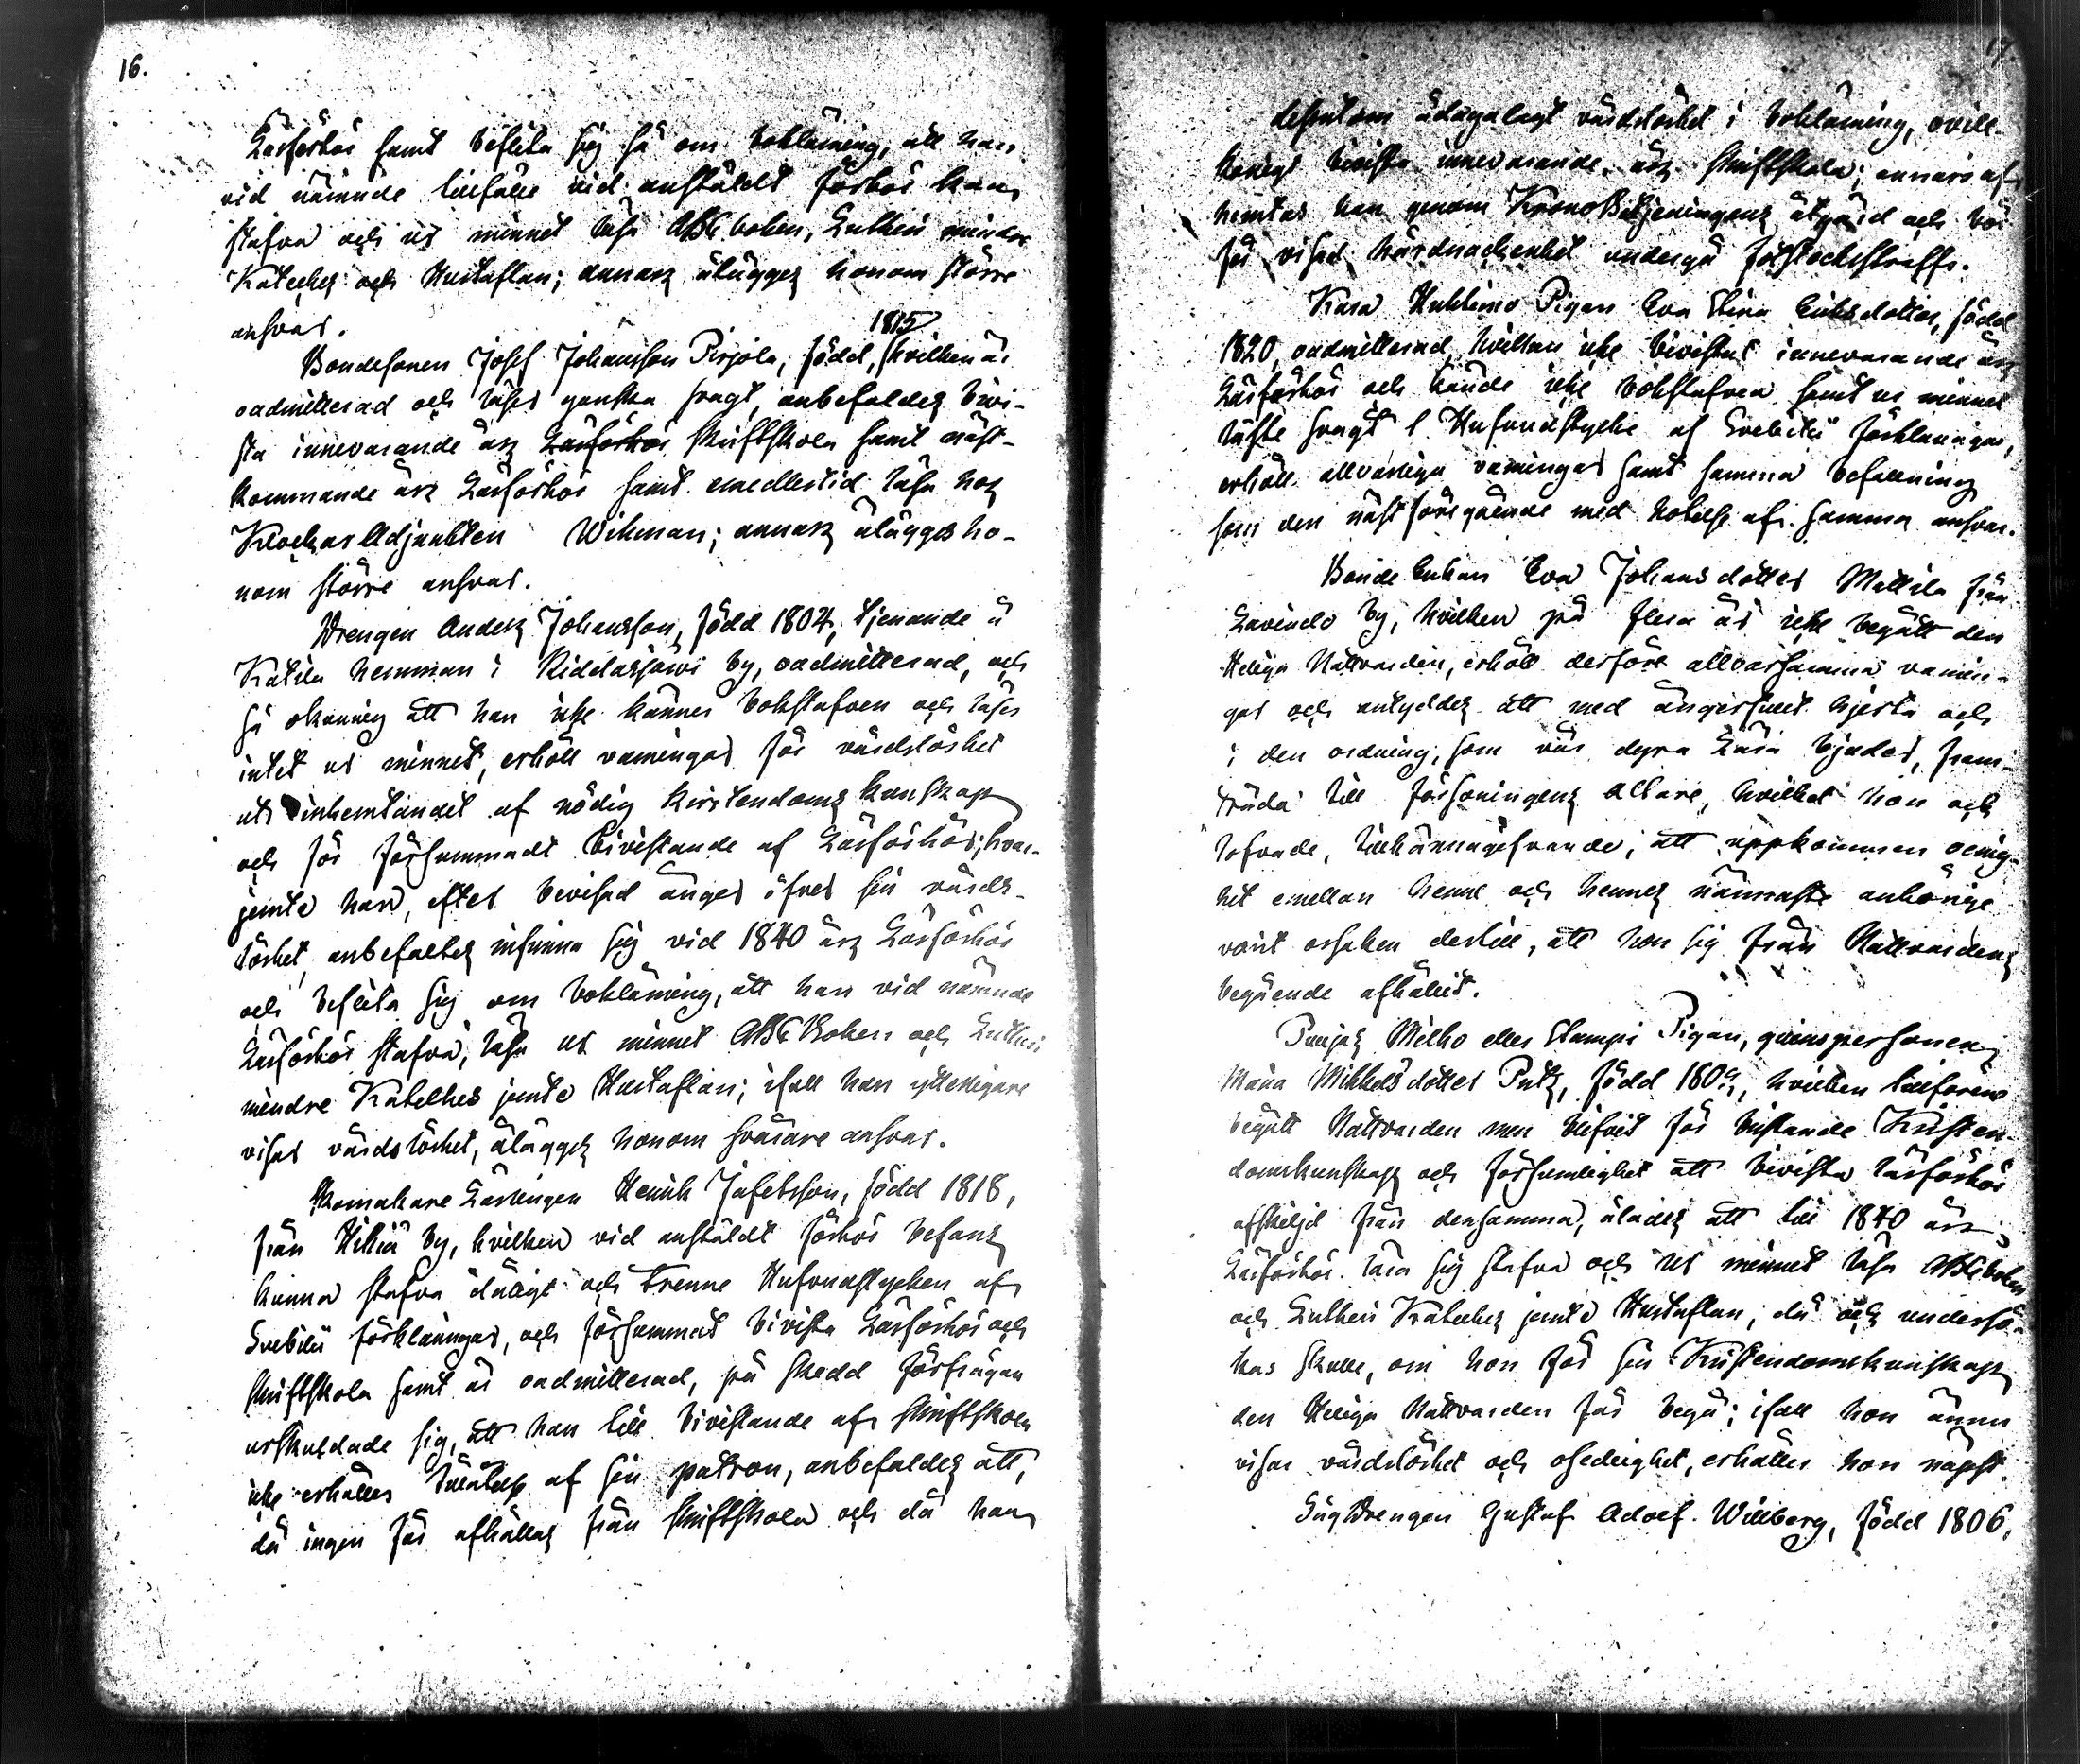 16.
Läsförhör samt beflita sig så om bokläsning, att han
vid nämnde tillfälle vid anstäldt förhör kan
stafva och ur minnet läsa ABC boken, Lutheri mindre
Kateches och Hustaflan; annars ålägges honom större
ansvar.
Bondesonen Josef Johansson Pirjola, född 1815, hvilken är
oadmitterad och läser ganska svagt, anbefaldes bivi-
sta innevarande års Läsförhör Skriftskola samt näst-
kommande års Läsförhör samt emedlertid läsa hos
KlockarAdjunkten Wikman; annars ålägges ho-
nom större ansvar.
Drengen Anders Johansson, född 1804, tjenande å
Katila hemman i Kiddasjärwi by, oadmitterad, och
så okunnig att han icke känner bokstafven och läser
intet ur minnet, erhöll varningar för vårdslöshet
uti inhemtandet af nödig kristendoms kunskap
och för försummadt bivistande af Läsförhör; hvar-
jemte han, efter bevisad ånger öfver sin vårds-
löshet, anbefaltes infinna sig vid 1840 års Läsförhör
och beflita sig om bokläsning, att han vid nämnde
Läsförhör stafva, läsa ur minnet ABC Boken och Lutheri
mindre Katekes jemte Hustaflan; ifall han ytterligare
visar vårdslöshet, ålägges honom svårare ansvar.
Skomakare Lärlingen Henrik Jafetsson, född 1818,
från Hikiä by, hvilken vid anstäldt förhör befans
kunna stafva dåligt och trenne Hufvudstycken af
Svebilii förklaringar, och försummat bivista Läsförhör och
skriftskola samt är oadmitterad, på skedd förfrågan
urskuldade sig, att han till bivistande af Skriftskola
icke erhållit tillåtelse af sin patron, anbefaldes att,
då ingen får afhållas från Skriftskola och då han
17.
dessutom ådagalagt vårdslöshet i bokläsning, ovill-
korligt bivista innevarande års skriftskola; annars af-
hemtas han genom KronoBetjeningens åtgärd och bör
för visad hårdnackenhet undergå förstockstraff.
Kara Huhtimo Pigan Eva Stina Eriksdotter, född
1820, oadmitterad, hvilken icke bivistat innevarande års
Läsförhör och kände icke bokstafven samt ur minnet
läste svagt 1 Hufvudstycke af Svebilii förklaringar,
erhöll allvarliga varningar samt samma befallning
som den nästföregående med hotelse af samma ansvar.
Bonde Enkan Eva Johansdotter Mattila från
Lavindo by, hvilken på flera år icke begått den
Heliga Nattvarden, erhöll derföre allvarsamma varnin-
gar och antyddes att med ångerfullt hjerta och
i den ordning, som vår dyra Lära bjuder, fram-
träda till försoningens Altare, hvilket hon och
lofvade, tillkännagifvande, att uppkommen oenig-
het emellan henne och hennes närmaste anhörige
varit orsaken dertill, att hon sig från Nattvardens
begående afhållit.
Melho eller Stampi Pigan, qvinspersonen
Maria Mikkelsdotter Putz, född 1809, hvilken tillförene
begått Nattvarden men blifvit för bristande Kristen-
domskunskap och försumlighet att bivista läsförhör
afskiljd från densamma, ålades att till 1840 års
Läsförhör lära sig stafva och ur minnet läsa ABCboken
och Lutheri Kateches jemte Hustaflan, då och undersö-
kas skulle, om hon för sin Kristendomskunskap
den Heliga Nattvarden får begå; ifall hon ännu
visar vårdslöshet och osedlighet, erhåller hon näpst.
SågDrengen Gustaf Adolf Willberg, född 1806,